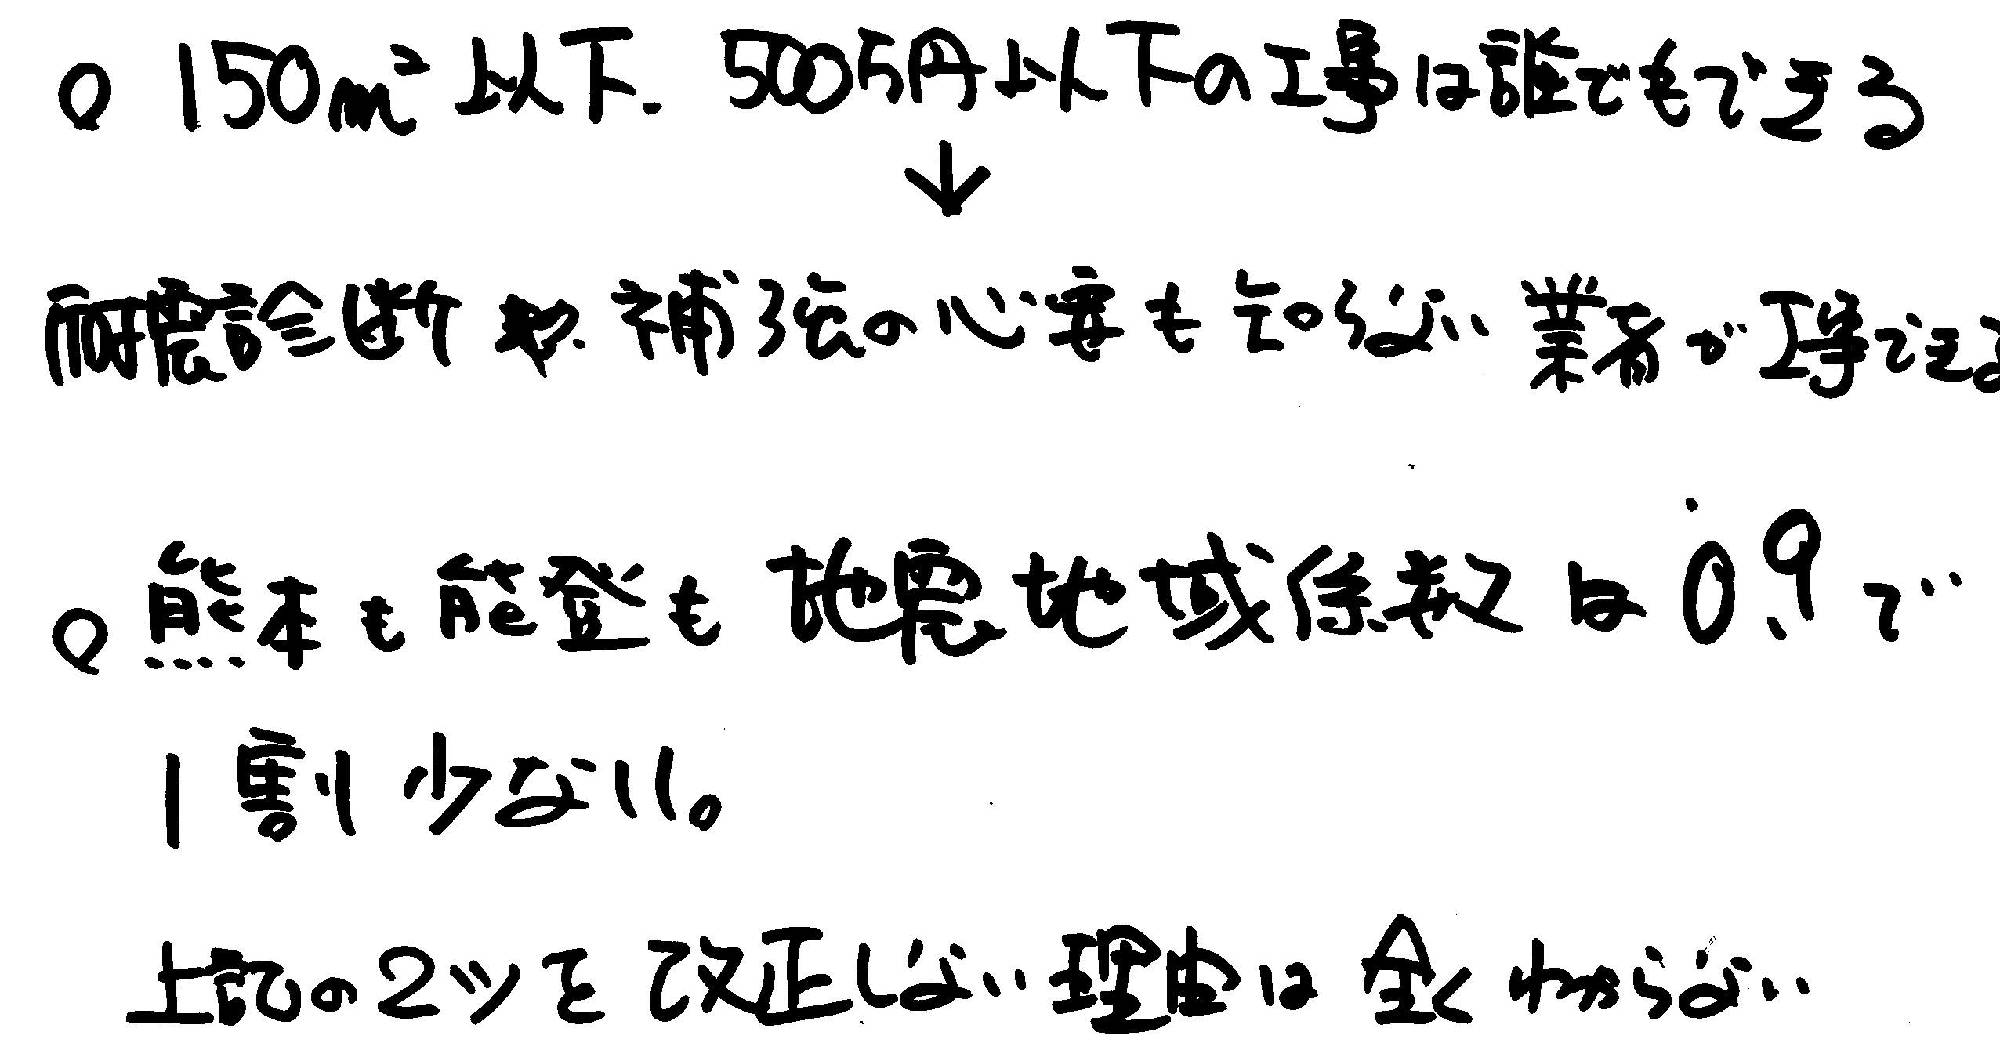 ○ 150m² 以下. 500万円以下の工事は誰でもできる
↓
耐震診断や.補強の必要も知らない業者が工事できる
○ 熊本も能登も地震地域係数は0.9で
1割少ない。
上記の2ツを改正しない理由は全くわからない